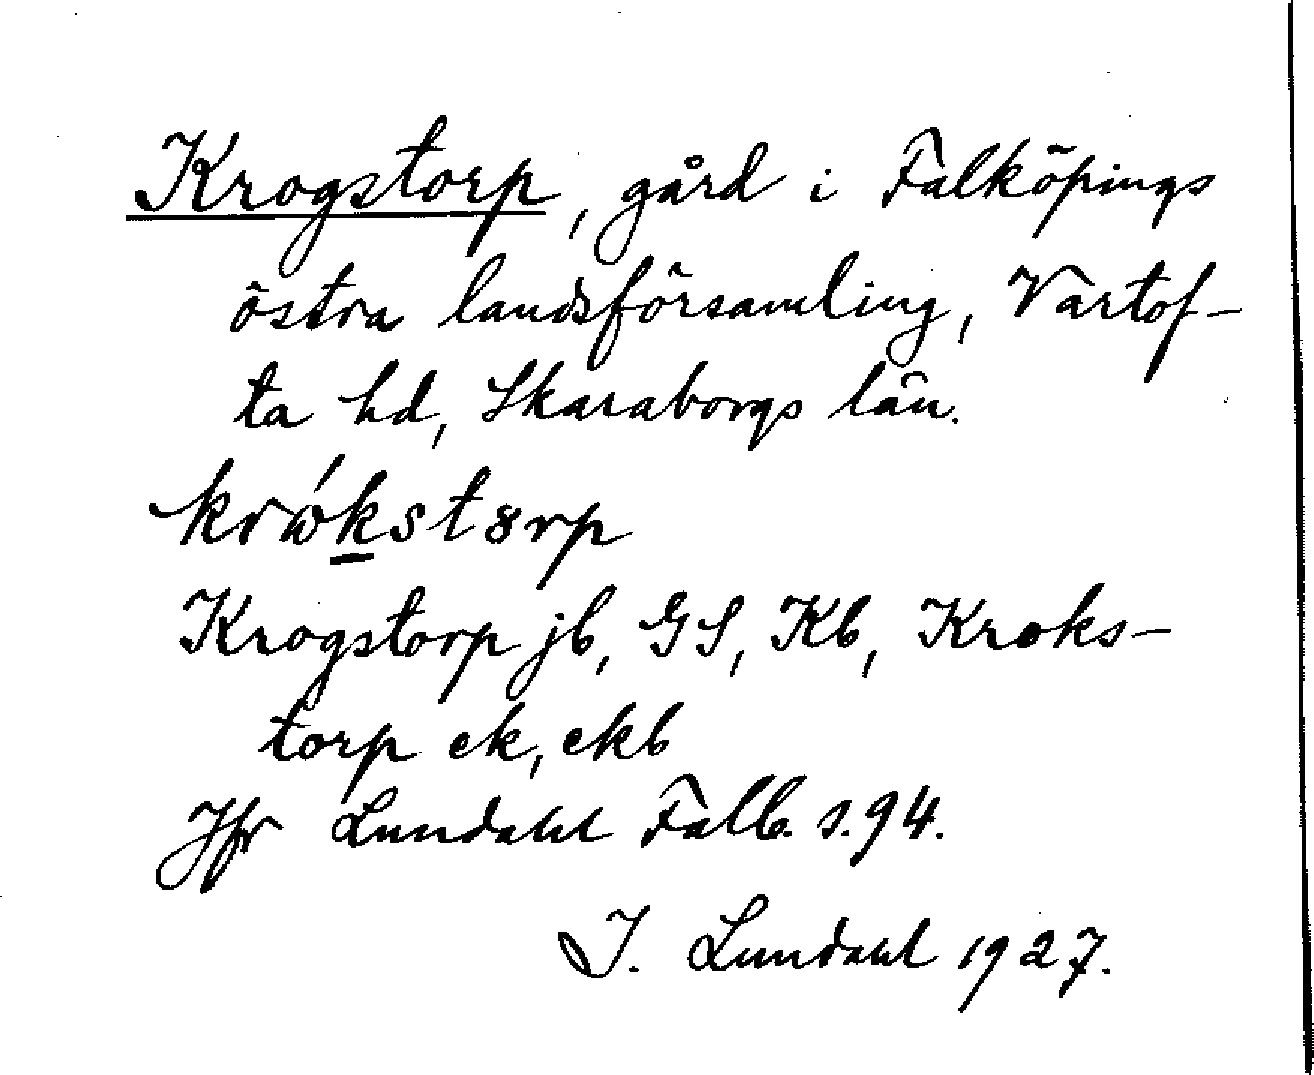 Krogstorp, gård i Falköpings
östra landsförsamling, Vartof-
ta hd, Skaraborgs län.
krώkstȣrp
Krogstorp jb, GS, Kb, Kroks-
torp ek, ekb
Jfr Lundahl Falb. s. 94.
I. Lundahl 1927.